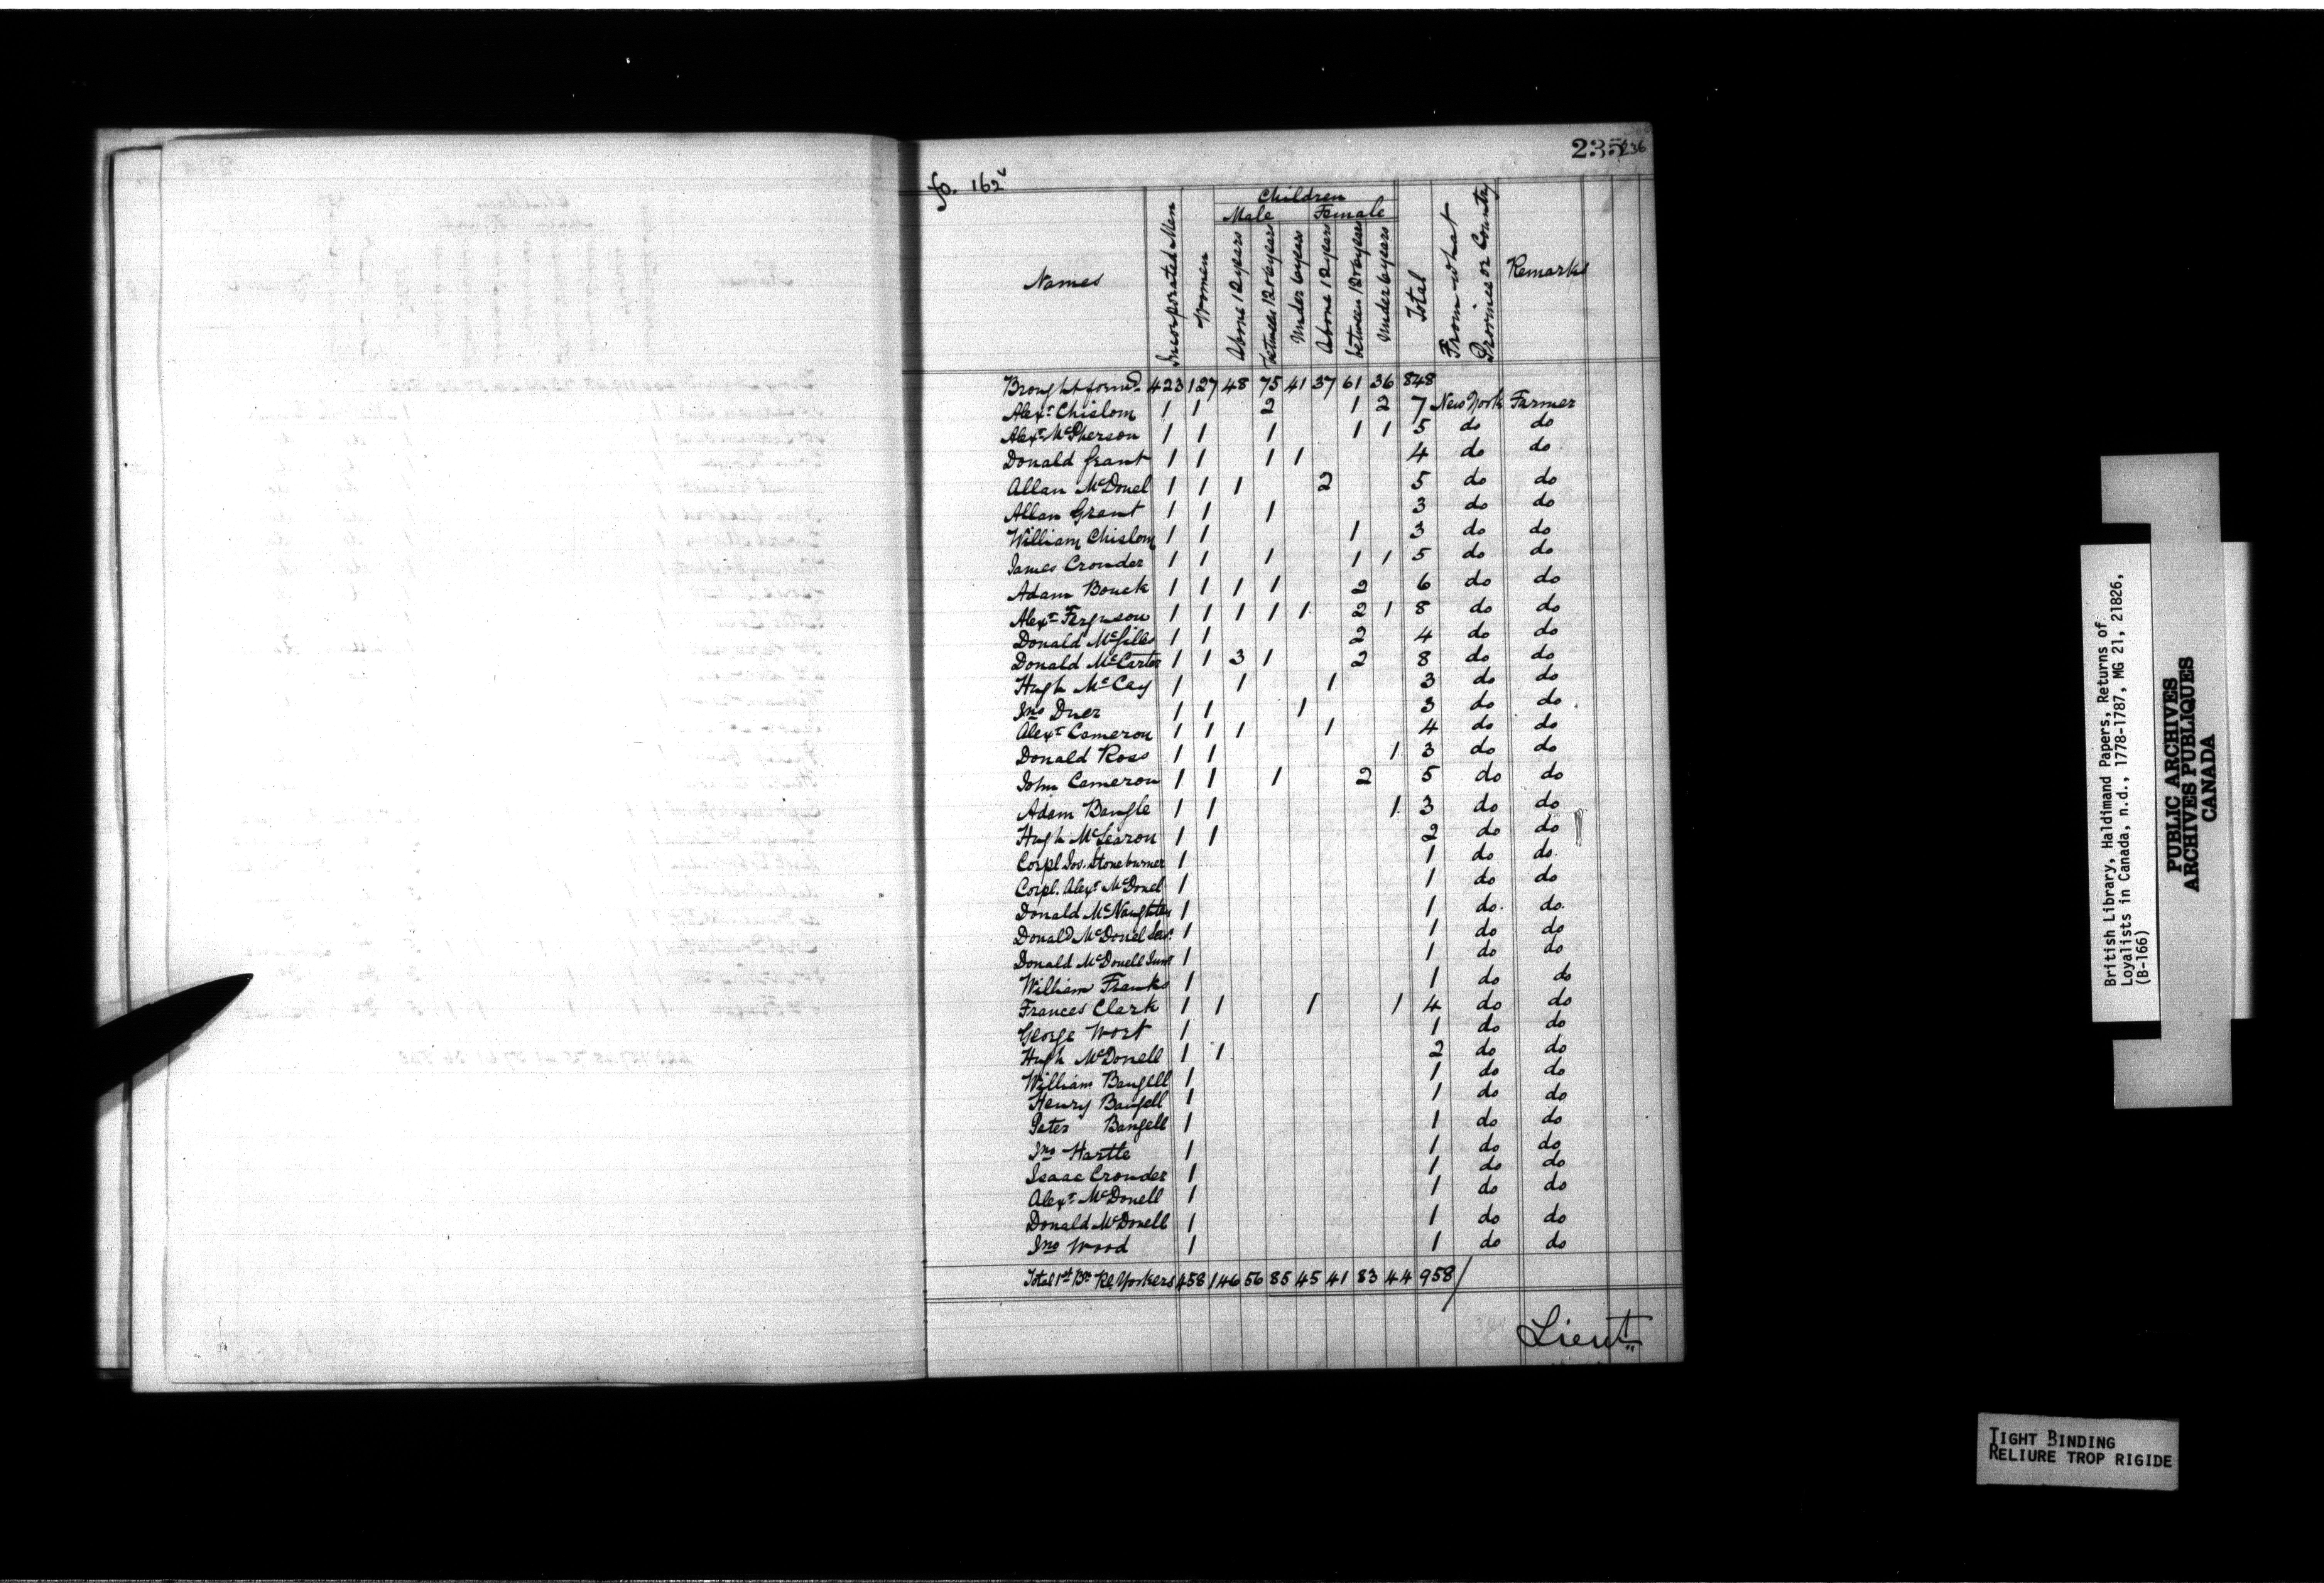 235 236
fo. 162v
Names
Incorporated Men
Women
Children
Male Female
Above 12 years
between 12 & 6 years
Under 6 years
Above 12 years
between 12 & 6 years
Under 6 years
Total
From what Province or Country
Remarks
Brought forwd. 423 127 48 75 41 37 61 36 848
Alexr. Chislom 1 1 2 1 2 7 New York Farmer
Alexr. McPherson 1 1 1 1 1 5 do do
Donald Grant 1 1 1 1 4 do do
Allan McDonel 1 1 1 2 5 do do
Allan Grant 1 1 1 3 do do
William Chislom 1 1 1 3 do do
James Crowder 1 1 1 1 1 5 do do
Adam Bouck 1 1 1 1 2 6 do do
Alexr. Ferguson 1 1 1 1 1 2 1 8 do do
Donald McGilles 1 1 2 4 do do
Donald McCarter 1 1 3 1 2 8 do do
Hugh McCay 1 1 1 3 do do
Jno Duer 1 1 1 3 do do
Alexr. Cameron 1 1 1 1 4 do do
Donald Ross 1 1 1 3 do do
John Cameron 1 1 1 2 5 do do
Adam Bangle 1 1 1 3 do do
Hugh McLearon 1 1 2 do do
Corpl Jos. Stoneburner 1 1 do do.
Corpl. Alexr. McDonel 1 1 do do
Donald McNaughton 1 1 do. do.
Donald McDonel Senr. 1 1 do do
Donald McDonell Junr 1 1 do do
William Franks 1 1 do do
Frances Clark 1 1 1 1 4 do do
George Wort 1 1 do do
Hugh McDonell 1 1 2 do do
William Bangell 1 1 do do
Henry Bangell 1 1 do do
Peter Bangell 1 1 do do
Jno Hartle 1 1 do do
Isaac Crowder 1 1 do do
Alexr. McDonell 1 1 do do
Donald McDonell 1 1 do do
Jno Wood 1 1 do do
Total 1st Bn Rl. Yorkers 458 146 56 85 45 41 83 44 958
Lieut
British Library, Haldimand Papers, Returns of
Loyalists in Canada, n.d., 1778-1787, MG 21, 21826,
(B-166)
PUBLIC ARCHIVES
ARCHIVES PUBLIQUES
CANADA
TIGHT BINDING
RELIURE TROP RIGIDE